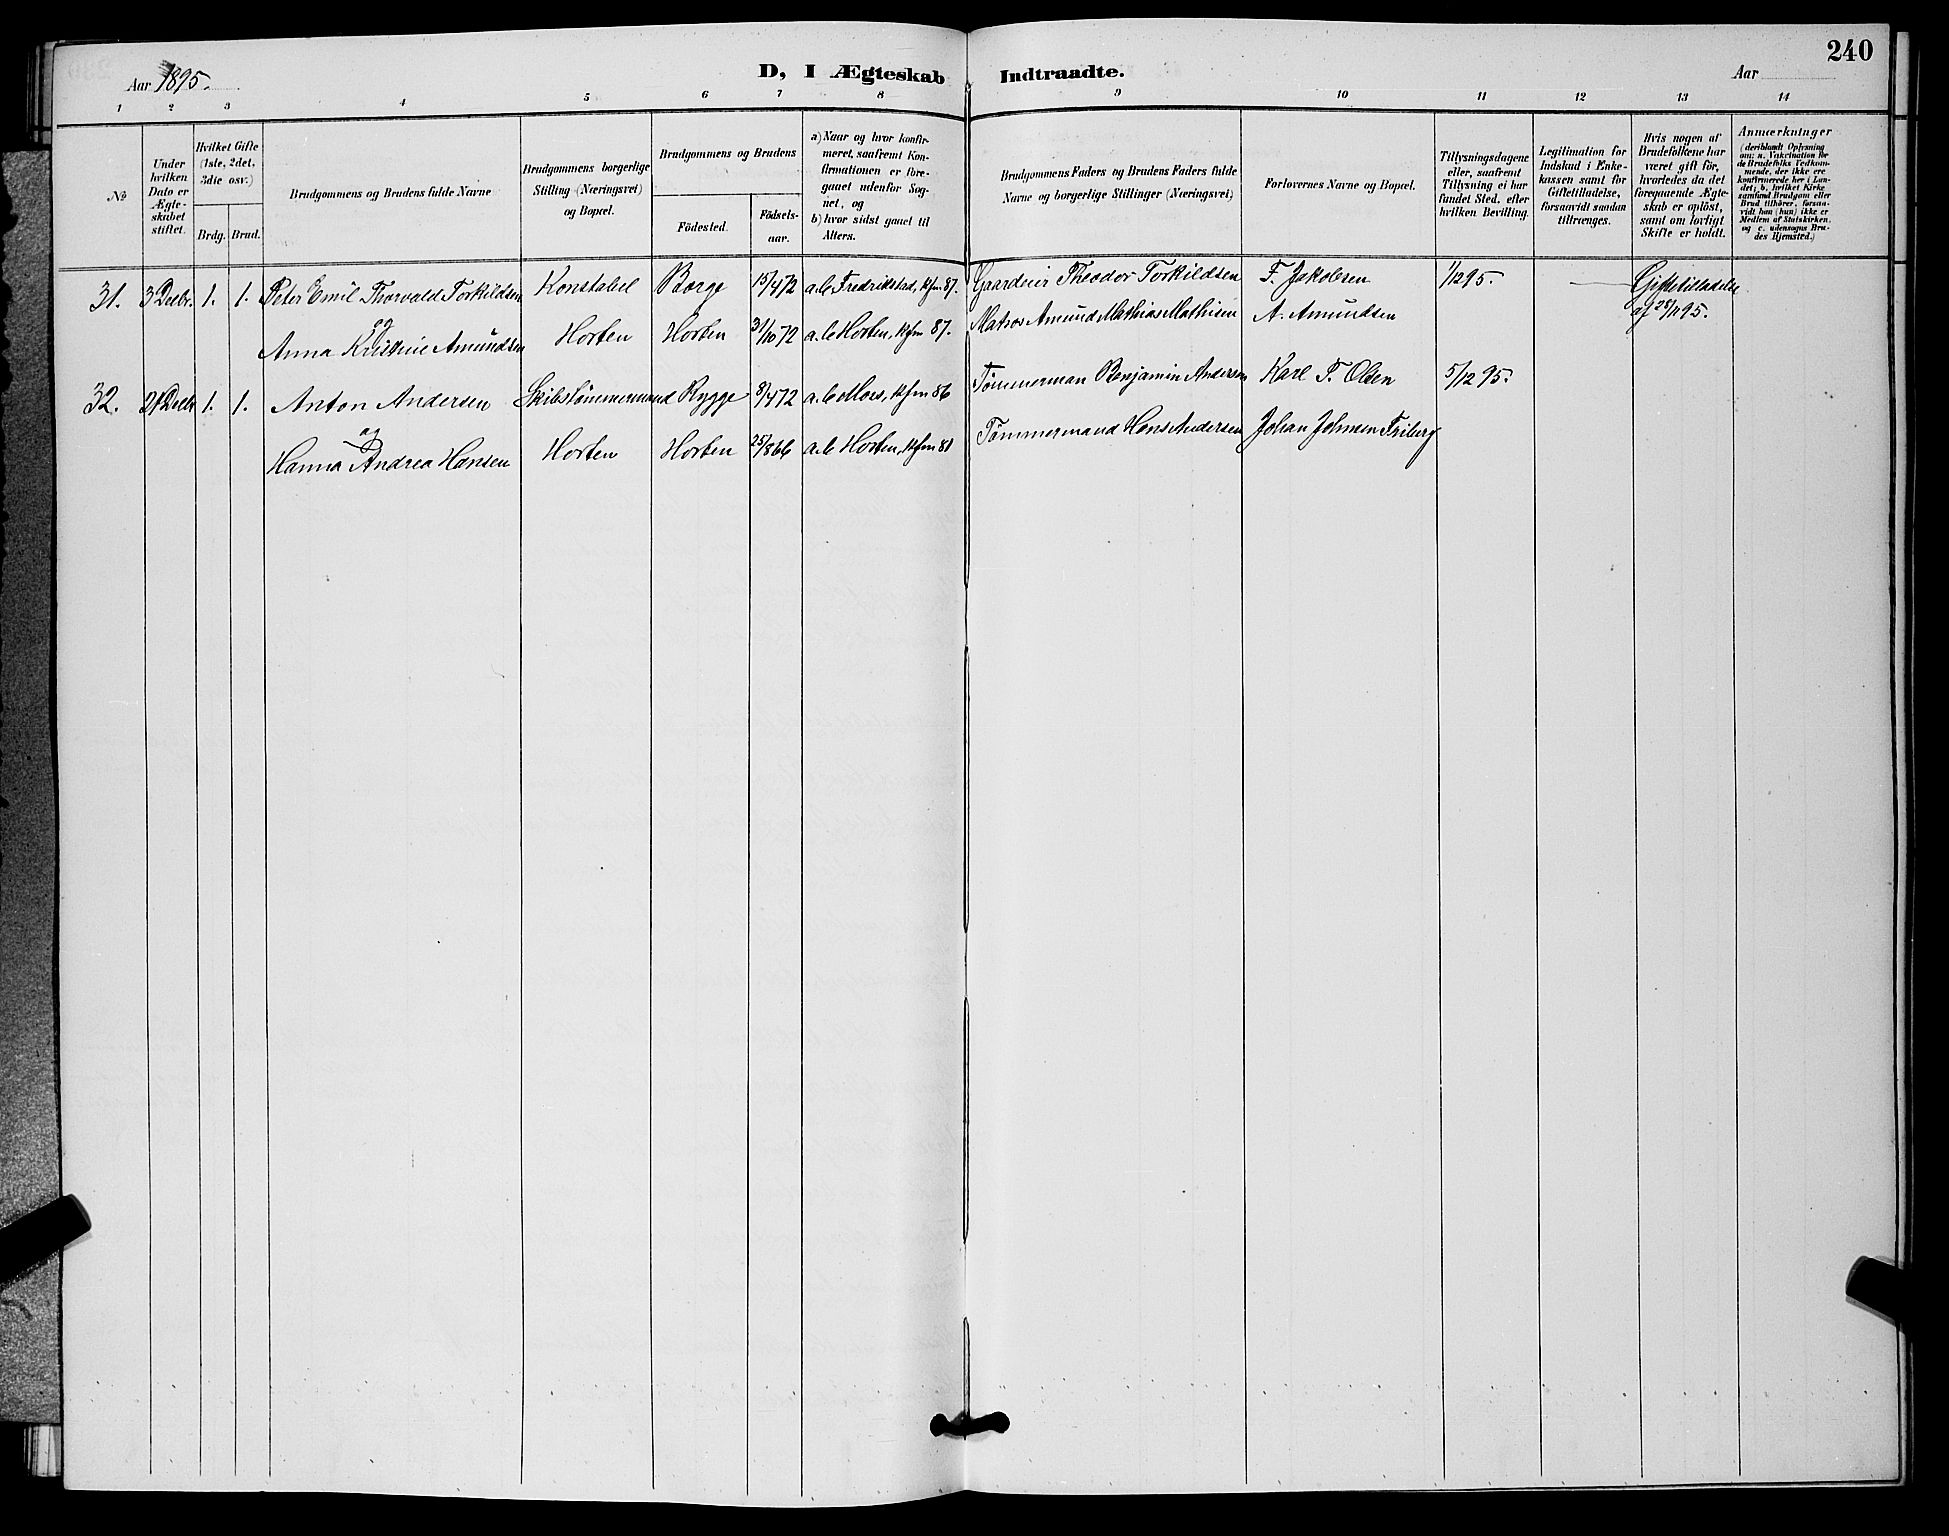 240
Aar 1895.
D, I Ægteskab Indtraadte.
Aar
1 2 3 4 5 6 7 8 9 10 11 12 13 14
№
Under hvilken Dato er Ægteskabet stiftet.
Hvilket Gifte (1ste, 2det, 3die osv.)
Brdg. Brud.
Brudgommens og Brudens fulde Navne
Brudgommens borgerlige Stilling (Næringsvei) og Bopæl.
Brudgommens og Brudens
Födested.
Födsels-aar.
a) Naar og hvor konfirmeret, saafremt Konfirmationen er foregaaet udenfor Sognet, og
b) hvor sidst gaaet til Alters.
Brudgommens Faders og Brudens Faders fulde Navne og borgerlige Stillinger (Næringsvei)
Forlovernes Navne og Bopæl.
Tillysningsdagene eller, saafremt Tillysning ei har fundet Sted, efter hvilken Bevilling.
Legitimation for Indskud i Enkekassen samt for Giftetilladelse, forsaavidt saadan tiltrænges.
Hvis nogen af Brudefolkene har været gift för, hvorledes da det foregaaende Ægteskab er oplöst, samt om lovligt Skifte er holdt.
Anmærkninger (deriblandt Oplysning om: a. Vakcination for de Brudefolks Vedkommende, der ikke ere konfirmerede her i Landet; b. hvilket Kirkesamfund Brudgom eller Brud tilhörer, forsaavidt han (hun) ikke er Medlem af Statskirken, og c. udensogns Brudes Hjemsted.)
31. 3 Decbr. 1. 1. Peter Emil Thorvald Torkildsen Konstabel Borge 15/4 72 a.b Fredrikstad, kfm 87. Gaardeier Theodor Torkildsen F. Jakobsen 1/12 95. — Giftetilladelse
og
af 28/11 95.
Anna Kristine Amundsen Horten Horten 31/10 72 a.b Horten, kfm 87. Matros Amund Mathias Mathisen A. Amundsen
32. 21 Decbr 1. 1. Anton Andersen Skibstömmermand Rygge 8/4 72 a.b Moss, kfm 86 Tömmerman Benjamin Andersen Karl F. Olsen 5/12 95.
og
Hanna Andrea Hansen Horten Horten 25/8 66 a.b Horten, kfm 81 Tömmermand Hans Andersen Johan Johnsen Friberg